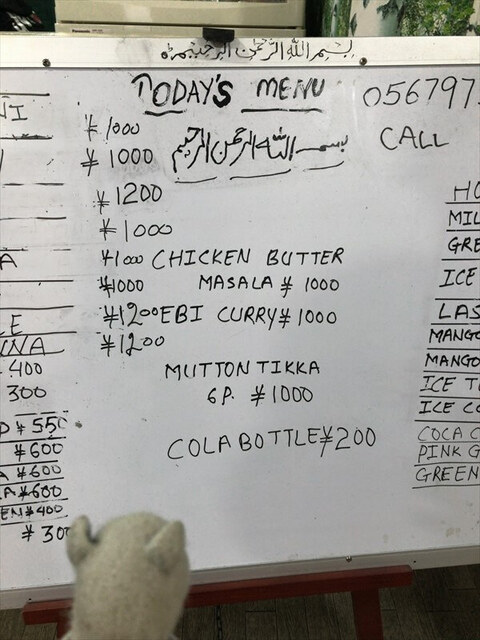 Panasonic
بسم الله الرحمن الرحيم
TODAY'S MENU
056797
CALL
بسم الله الرحمن الرحيم
¥ 1000
¥ 1000
¥ 1200
¥ 1000
¥1000 CHICKEN BUTTER
¥1000 MASALA ¥ 1000
¥1200 EBI CURRY ¥ 1000
¥1200
MUTTON TIKKA
6P. ¥1000
COLA BOTTLE ¥200
NI
A
LE
400
300
¥550
¥600
A ¥600
A ¥600
EN ¥400
¥ 300
HO
MIL
GRE
ICE
LAS
MANGO
MANGO
ICE T
ICE CO
COCA C
PINK G
GREEN